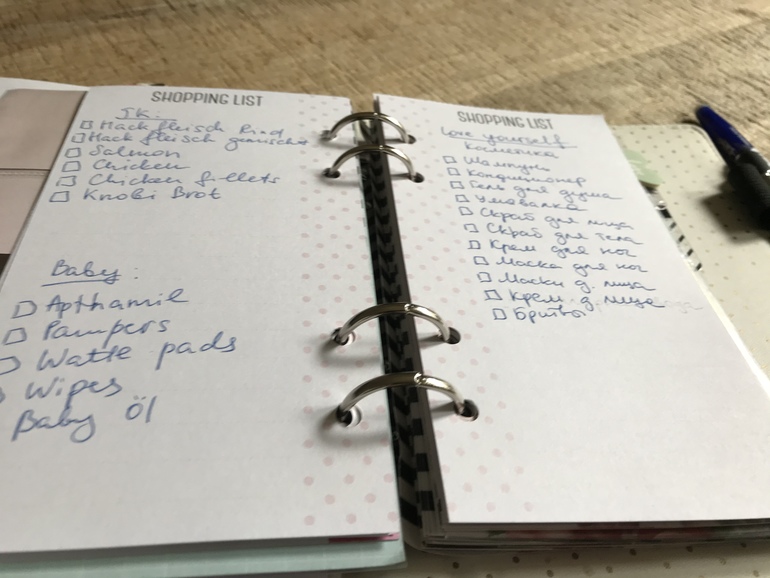 SHOPPING LIST
TK:
Hackfleisch Rind
Hackfleisch gemischt
Salmon
Chicken
Chicken fillets
Knobi Brot
Baby:
Apthamil
Pampers
Watte pads
Wipes
Baby Öl
SHOPPING LIST
Love yourself
Косметика
Шампунь
Кондиционер
Гель для душа
Умывалка
Скраб для лица
Скраб для тела
Крем для ног
Маска для ног
Маски д. лица
Крем д. лица
Бритвы